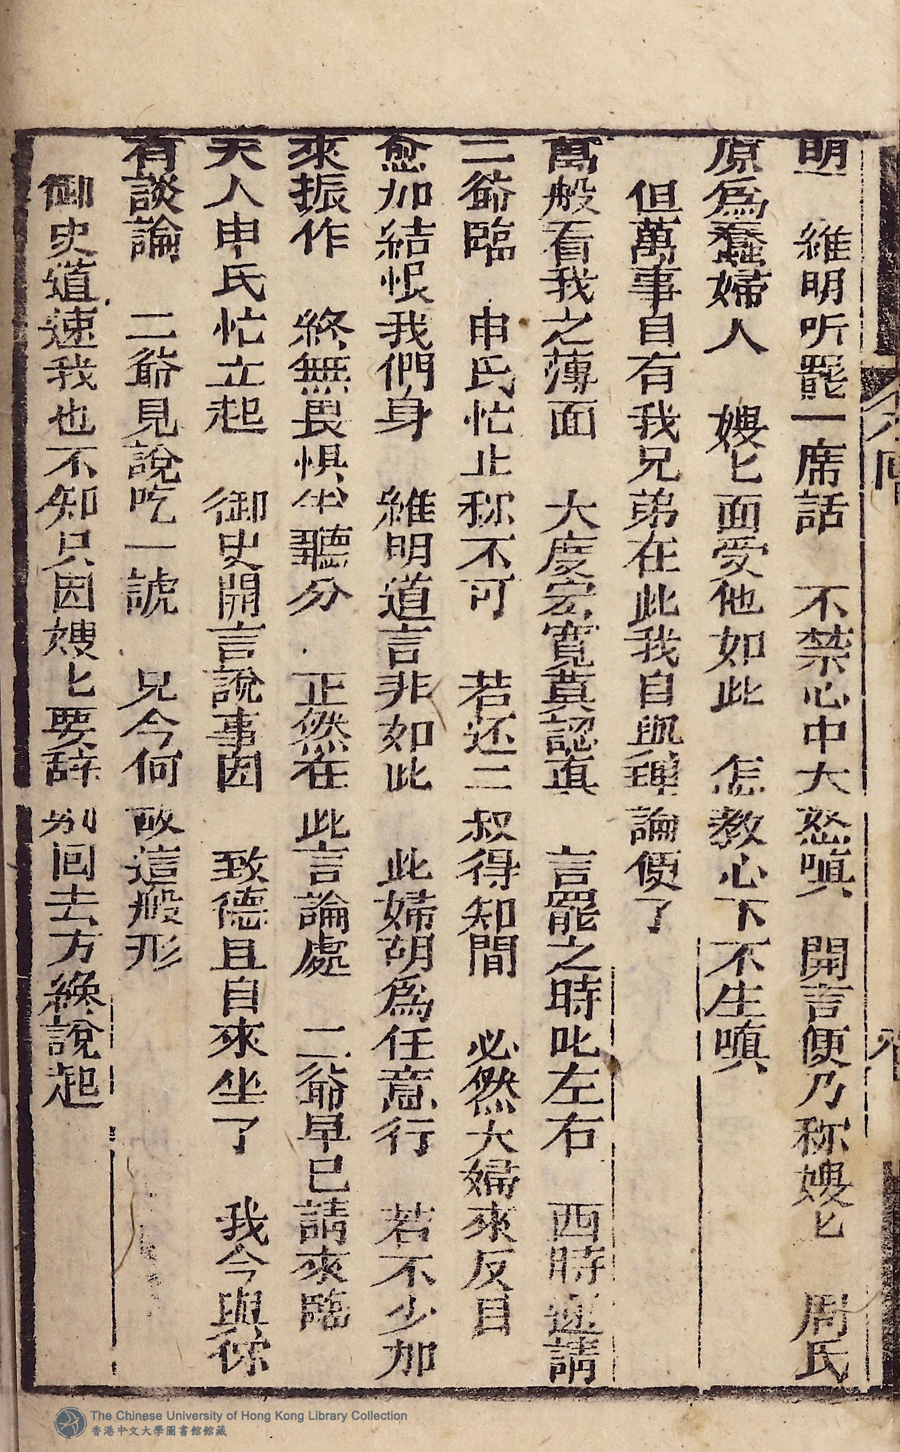 明　維明听罷一席話　不禁心中大怒嗔　開言便乃称嫂匕　周氏
原為蠢婦人　嫂匕面愛他如此　怎教心下不生嗔
但萬事自有我兄弟在此我自與理論便了
萬般看我之薄面　大度宏寬莫認真　言罷之時叱左右　西時速請
二爺臨　申氏忙止称不可　若还二叔得知間　必然夫婦來反目
愈加結恨我們身　維明道言非如此　此婦胡為任意行　若不少加
來振作　終無畏惧半聽分　正然在此言論處　二爺早已請來臨
夫人申氏忙立起　御史開言說事因　致德且自來坐了　我今與你
有談論　二爺見說吃一諕　兄今何故這般形
御史道速我也不知只因嫂匕要辞別回去方纔說起
The Chinese University of Hong Kong Library Collection
香港中文大學圖書館館藏